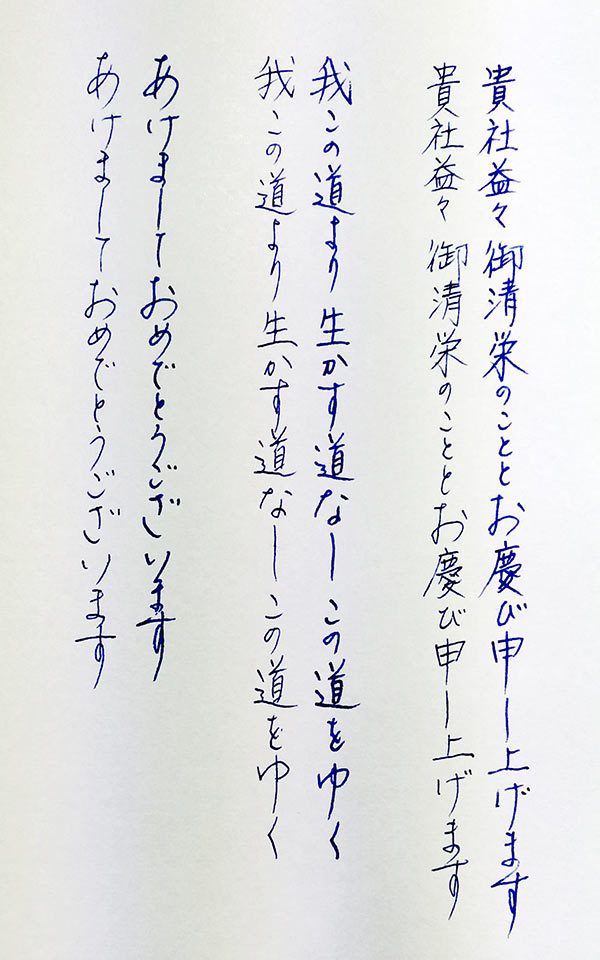 貴社益々御清栄のこととお慶び申し上げます
貴社益々御清栄のこととお慶び申し上げます
我この道より生かす道なしこの道をゆく
我この道より生かす道なしこの道をゆく
あけましておめでとうございます
あけましておめでとうございます